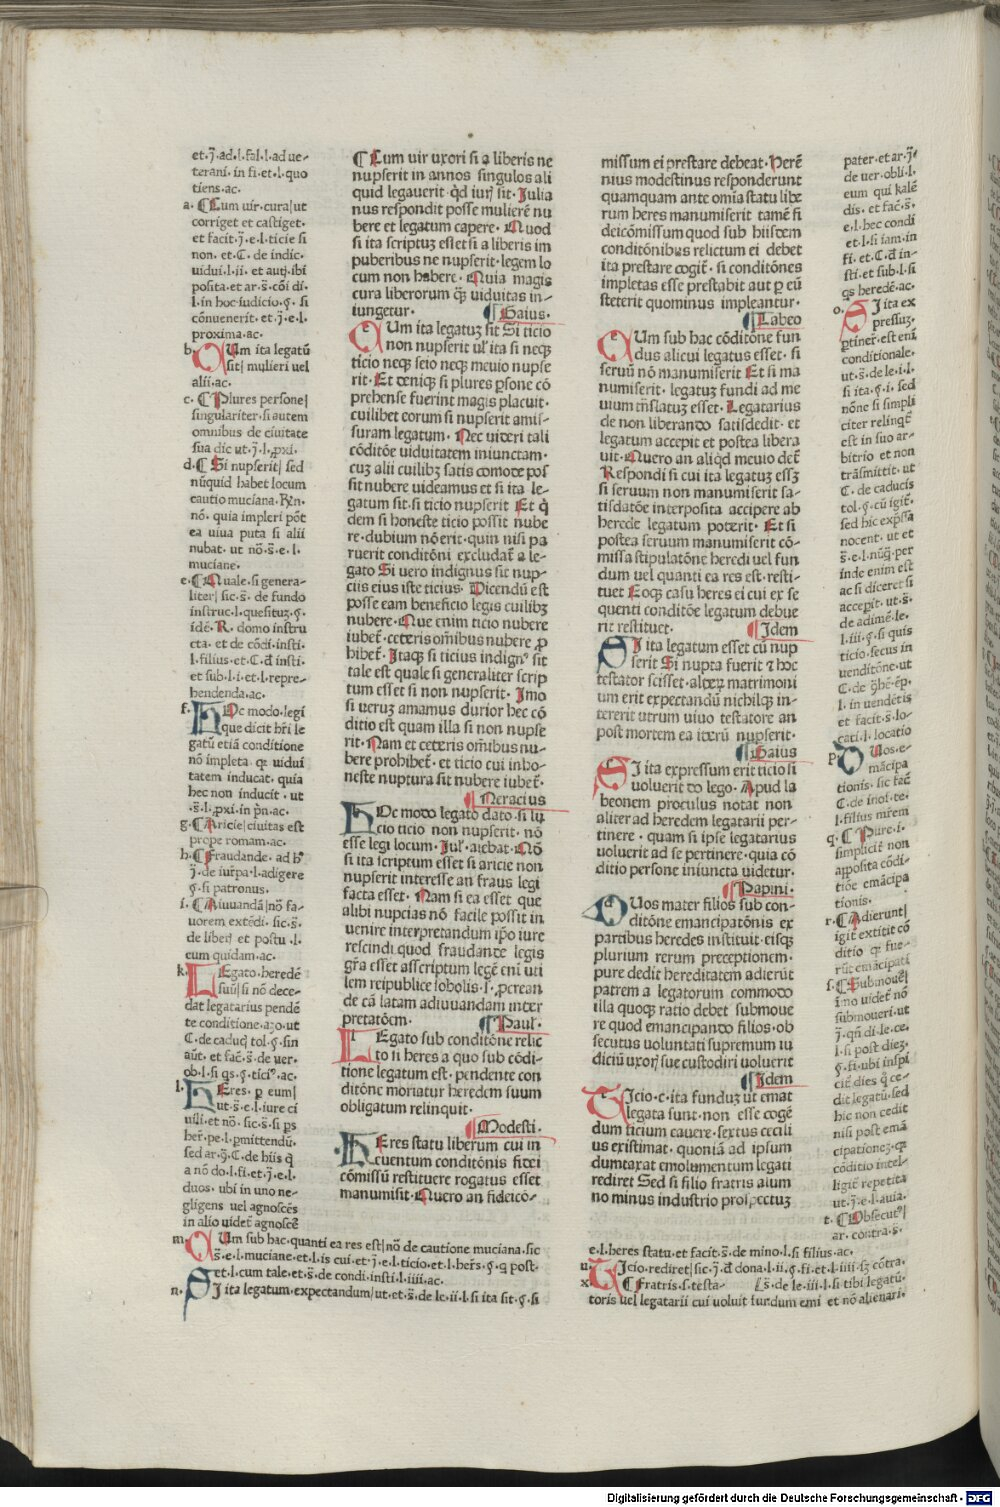 et·j̃·ad·l·fal·l·ad ue-
terani· in fi·et·l·quo
tiens·ac·
a· Cum uir·cura|ut
corriget et castiget·
et facit·j̃·e·l·ticie si
non· et·C· de indic·
uidui·l·ii· et autj·ibi
posita·et ar·s̃·cõi di·
l·in hoc iudicio·ꝯ· si
cõnuenerit·et·j̃·e·l·
proxima·ac·
b· Um ita legatũ
sit| mulieri uel
alii·ac·
c· Plures persone|
singulariter·si autem
omnibus de ciuitate
sua dic ut·j̃·l·ꝓxi·
d· Si nupserit| sed
nũquid habet locum
cautio muciana·
nõ· quia impleri põt
ea uiua puta si alii
nubat· ut nõ·s̃·e·l·
muciane·
e· Quale·si genera-
liter| sic·s̃· de fundo
instruc·l·quesituz·ꝯ·
idẽ·R· domo instru
cta· et de cõdi·insti·
l·filius·et·C·đ insti·
et sub·l·i·et·l·repre-
hendenda·ac·
f· HOc modo·legi
que dicit hr̃i le
gatũ etiã conditione
nõ impleta· qr uidui
tatem inducat· quia
hec non inducit· ut
s̃·l·ꝓxi·in pr̃n·ac·
g· Aricie|ciuitas est
prope romam·ac·
h· Fraudande· ad h̃
j̃·de iur̃pa·l·adigere
ꝯ·si patronus·
i· Aiuuandã|nõ fa-
uorem extẽdi·sic·s̃·
de liber̃ et postu·l·
cum quidam·ac·
k· LEgato·heredẽ
suũ|si nõ dece-
dat legatarius pendẽ
te conditione·azo·ut
C·de caduc̃ tol·ꝯ·sin
aũt· et fac̃·s̃·de uer·
ob·l·si qs·ꝯ·tici⁹·ac·
l· HEres· ꝑ eum|
ut·s̃·e·l·iure ci
uili·et nõ· sic·s̃·si ꝑs
her̃·pe·l·ꝑmittendũ·
sed ar·j̃·C·de hiis q̃
a nõ do·l·fi·et·j̃·e·l·
duos· ubi in uno ne-
gligens uel agnoscẽs
in alio uidet̃ agnoscẽ
Cum uir uxori si a liberis ne
nupserit in annos singulos ali
quid legauerit· qđ iur̃ sit· Iulia
nus respondit posse mulierẽ nu
bere et legatum capere· Quod
si ita scriptuz esset si a liberis im
puberibus ne nupserit·legem lo
cum non habere· Quia magis
cura liberorum q̃ȝ uiduitas in-
iungetur· Gaius·
CUm ita legatuȝ sit Si ticio
non nupserit ul' ita si neqȝ
ticio neqȝ seio neqȝ meuio nupse
rit· Et deniqȝ si plures ꝑsone cõ
prehense fuerint magis placuit·
cuilibet eorum si nupserit amis-
suram legatum· Nec uideri tali
cõditõe uiduitatem iniunctam·
cuȝ alii cuilibȝ satis comode pos
sit nubere uideamus et si ita le-
gatum sit·si ticio nupserit Et q̃
dem si honeste ticio possit nube
re·dubium nõ erit·quin nisi pa
ruerit conditõni excludat̃ a le-
gato Si uero indignus sit nup-
ciis eius iste ticius· Dicendũ est
posse eam beneficio legis cuilibȝ
nubere· Que enim ticio nubere
iubet̃·ceteris om̃ibus nubere ꝓ
hibet̃· Itaqȝ si ticius indign⁹ sit
tale est quale si generaliter scrip
tum esset si non nupserit· Imo
si ueruȝ amamus durior hec cõ
ditio est quam illa si non nupse
rit· Nam et ceteris om̃ibus nu-
bere prohibet̃· et ticio cui inho-
neste nuptura sit nubere iubet̃·
Neracius
HOc modo legato dato·si lu
cio ticio non nupserit· nõ
esse legi locum· Iul' aiebat· Nõ
si ita scriptum esset si aricie non
nupserit interesse an fraus legi
facta esset· Nam si ea esset que
alibi nupcias nõ facile possit in
uenire interpretandum ip̃o iure
rescindi quod fraudande legis
gr̃a esset asscriptum legẽ eni uti
lem reipublice sobolis·i·ꝓcrean
de cã latam adiuuandam inter
pretatõem· Paul'·
LEgato sub conditõne relic
to ii heres a quo sub cõdi-
tione legatum est· pendente con
ditõne moriatur heredem suum
obligatum relinquit·
Modesti·
HEres statu liberum cui in
euentum conditõnis fidei
cõmissũ restituere rogatus esset
manumisit· Quero an fideicõ-
missum ei prestare debeat· Herẽ
nius modestinus responderunt
quamquam ante omia statu libe
rum heres manumiserit tamẽ si
deicõmissum quod sub hiisdem
conditõnibus relictum ei debet
ita prestare cogit̃· si conditões
impletas esse prestabit aut ꝑ eũ
steterit quominus impleantur·
Labeo
CUm sub hac cõditõne fun
dus alicui legatus esset· si
seruũ nõ manumiserit Et si ma
numiserit· legatuȝ fundi ad me
uium tr̃slatuȝ esset· Legatarius
de non liberando satisdedit· et
legatum accepit et postea libera
uit· Quero an aliq̃d meuio deet̃
Respondi si cui ita legatuȝ essȝ
si seruum non manumiserit sa-
tisdatõne interposita accipere ab
herede legatum poterit· Et si
postea seruum manumiserit cõ-
missa stipulatõne heredi uel fun
dum uel quanti ea res est·resti-
tuet Eoqȝ casu heres ei cui ex se
quenti conditõne legatum debue
rit restituet· Idem
SI ita legatum esset cũ nup
serit Si nupta fuerit ⁊ hoc
testator scisset·alteꝝ matrimoni
um erit expectandũ nichilqȝ in-
tererit utrum uiuo testatore an
post mortem ea iterũ nupserit·
Gaius
SI ita expressum erit ticio si
uoluerit do lego· Apud la
beonem proculus notat non
aliter ad heredem legatarii per-
tinere· quam si ipse legatarius
uoluerit ad se pertinere·quia cõ
ditio persone iniuncta uidetur·
Papini·
DUos mater filios sub con-
ditõne emancipatõnis ex
partibus heredes instituit·eisqȝ
plurium rerum preceptionem·
pure dedit hereditatem adierũt
patrem a legatorum commodo
illa quoqȝ ratio debet submoue
re quod emancipando filios·ob
secutus uoluntati supremum iu
diciũ uxor̃ sue custodiri uoluerit
Idem
TIcio·c·ita funduȝ ut emat
legata sunt·non esse cogẽ
dum ticium cauere·sextus cecili
us existimat·quoniã ad ipsum
dumtaxat emolumentum legati
rediret Sed si filio fratris alum
no minus industrio prospectuȝ
pater·et ar·j̃·
de uer·obli·l·
eum qui kalẽ
dis· et fac̃·s̃·
e·l·hec condi
et·l·si iam·in
fi·et·C·đ in-
sti·et sub·l·si
qs heredẽ·ac·
o· SI ita ex
pressuȝ·
ꝑtiner̃·est eni
conditionale·
ut·s̃·de le·i·l·
si ita·ꝯ·i· sed
nõne si simpli
citer relinqt̃
est in suo ar-
bitrio et non
trãsmittit·ut
C·de caducis
tol·ꝯ·cũ igit̃·
sed hic exp̃ssa
nocent·ut et
s̃·e·l·nũq̃·per
inde enim est
ac si diceret si
accepit·ut·s̃·
de adime·le·
l·iii·ꝯ·si quis
ticio·secus in
uenditõne·ut
C·de ꝯhẽ·ẽp·
l·in uendẽtis
et facit·s̃·lo-
cati·l·locatio
p· DUos·e-
mãcipa
tionis·sic fac̃
C·de inof·te·
l·filius mr̃em
q· Pure·i·
simplicit̃ non
aꝓposita cõdi-
tiõe emãcipa
tionis·
r· Adierunt|
igit̃ extitit cõ
ditio qr fue-
rũt emãcipati
s· Submoue|
imo uidet̃ nõ
submoueri·ut
j̃·qñ di·le·ce·
l·si post dieȝ·
ꝯ·fi·ubi inspi
cit̃ dies q̃ ce-
dit legatũ·sed
hic non cedit
nisi post emã
cipationeȝ·qr
cõditio intel-
ligit̃ repetita
ut·j̃·e·l·auia·
t· Obsecut⁹|
ar· contra·s̃·
m· CUm sub hac·quanti ea res est|nõ de cautione muciana·sic
s̃·e·l·muciane·et·l·is cui·et·j̃·e·l·ticio·et·l·her̃s·ꝯ·q̃ post·
et·l·cum tale·et·s̃·de condi·insti·l·iiii·ac·
n· SI ita legatum·expectandum|ut·et·s̃·de le·ii·l·si ita sit·ꝯ·si
e·l·heres statu·et facit·s̃·de mino·l·si filius·ac·
u· TIcio·rediret|sic·j̃·đ dona·l·ii·ꝯ·fi·et·l·iiii·sȝ cõtra·
x· Fratris·l·testa- s̃·de le·iii·l·si tibi legatũ·
toris uel legatarii cui uoluit fundum emi et nõ alienari·
Digitalisierung gefördert durch die Deutsche Forschungsgemeinschaft - DFG